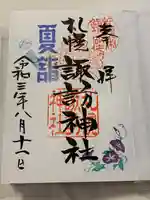 奉拝
札幌諏訪神社
夏詣
令和三年八月十一日